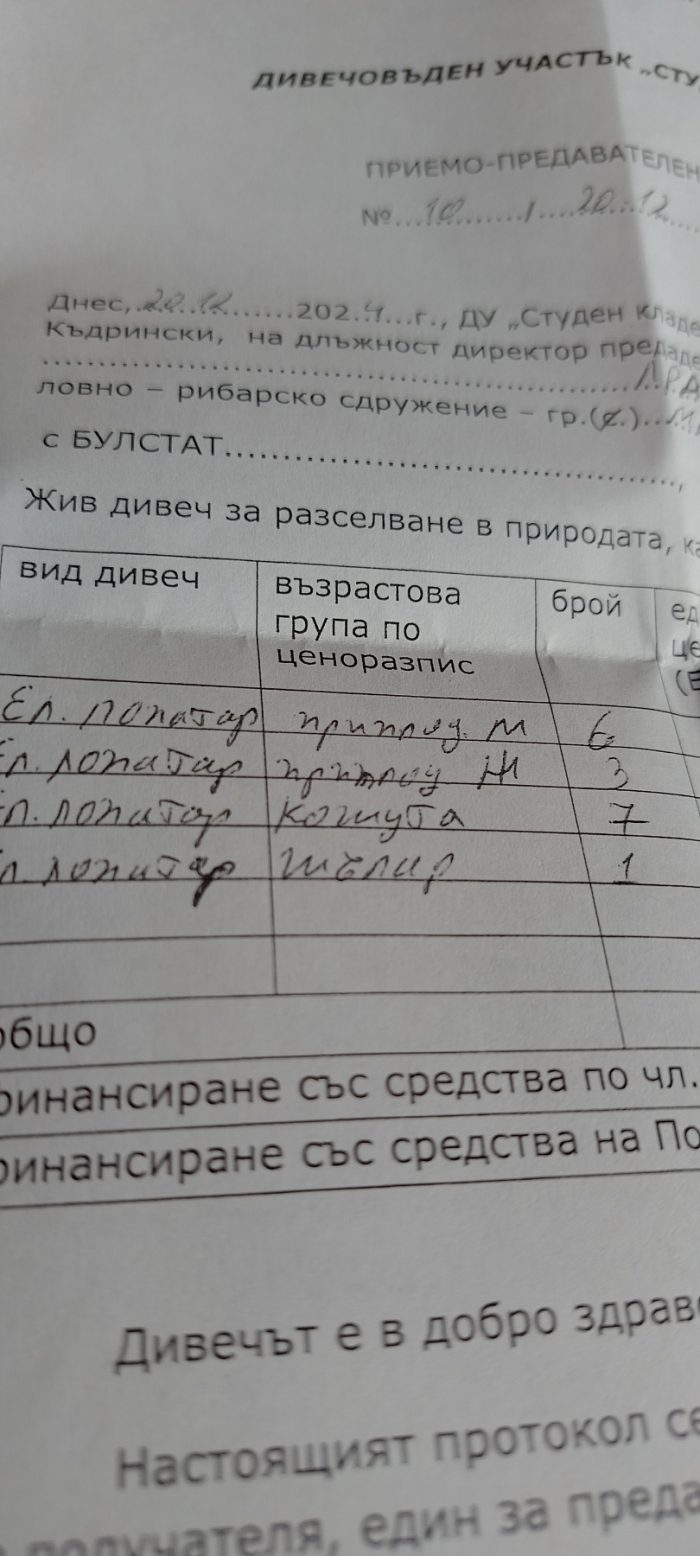 ДИВЕЧОВЪДЕН УЧАСТЪК „СТУ
ПРИЕМО-ПРЕДАВАТЕЛЕН
№...10......../....20..12....
Днес,.20.12......202.4...г., ДУ „Студен Кладе
Къдрински, на длъжност директор предаде
ловно – рибарско сдружение – гр.(с.)...
с БУЛСТАТ.......................................,
Жив дивеч за разселване в природата, ка
вид дивеч възрастова група по ценоразпис брой ед це (Е
Ел. лопатар приплод. М 6
Ел. лопатар приплод Ж 3
Ел. лопатар кошута 7
Ел. лопатар шилар 1
общо
финансиране със средства по чл.
финансиране със средства на По
Дивечът е в добро здраво
Настоящият протокол се
получателя, един за преда